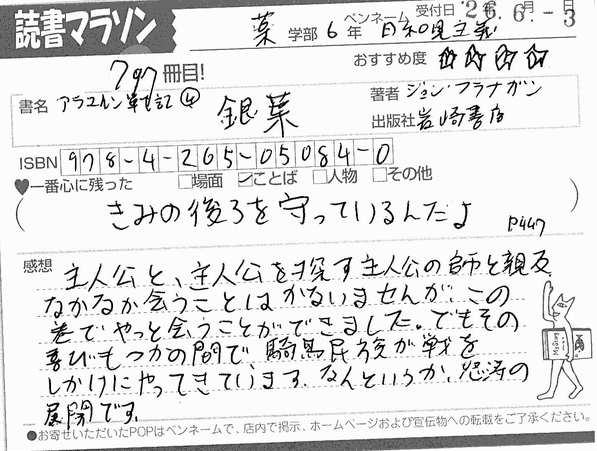 読書マラソン
薬 学部 6 年 ペンネーム 日和見主義 受付日 '26.6.-3
797冊目! おすすめ度 ☆☆☆☆
書名 アラルエン戦記④ 銀葉
著者 ジョン・フラナガン
出版社 岩崎書店
ISBN 978-4-265-05084-0
♥一番心に残った □場面 ☑ことば □人物 □その他
(きみの後ろを守っているんだよ P447)
感想 主人公と、主人公を探す主人公の師と親友
なかなか会うことはかないませんが、この
巻でやっと会うことができました。でもその
喜びもつかの間で、騎馬民族が戦を
しかけにやってきています。なんというか、怒涛の
展開です。
●お寄せいただいたPOPはペンネームで、店内で掲示、ホームページおよび宣伝物への転載をご了承ください。